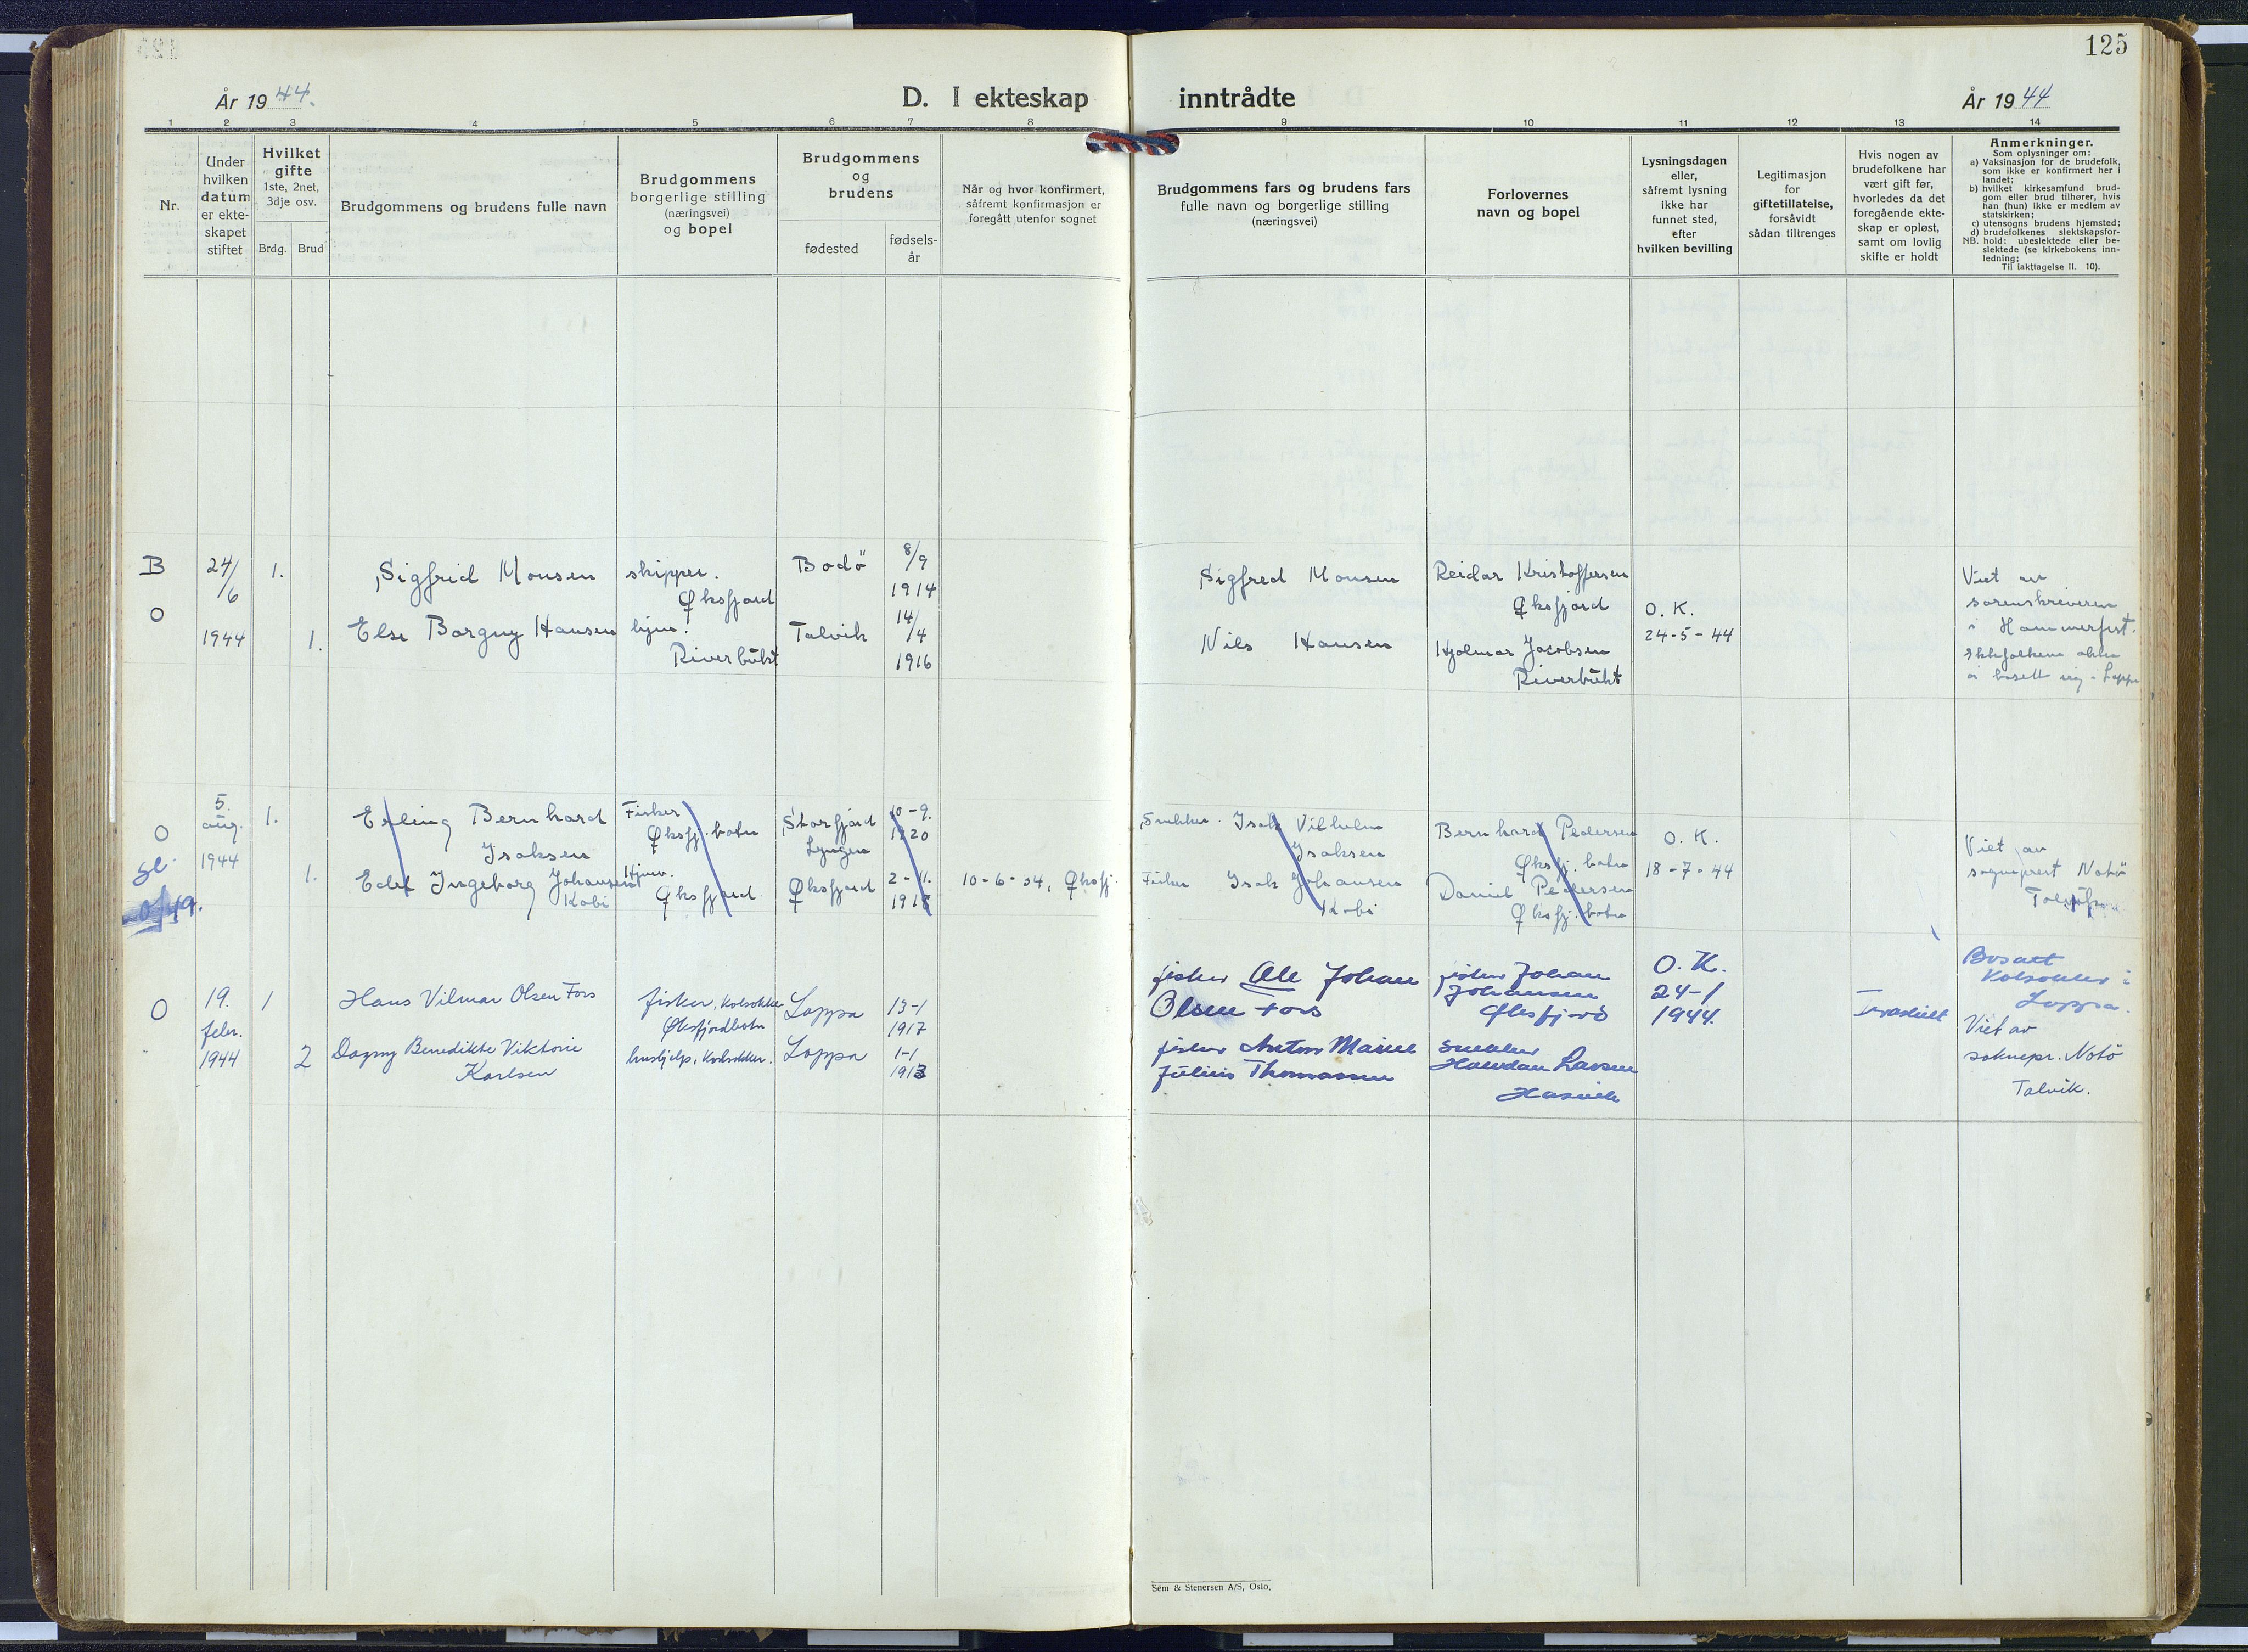 125
År 1944.
D. I ekteskap inntrådte
År 1944
1 2 3 4 5 6 7 8 9 10 11 12 13 14
Nr.
Under
hvilken
datum
er ekte-
skapet
stiftet
Hvilket
gifte
1ste, 2net,
3dje osv.
Brdg. Brud
Brudgommens og brudens fulle navn
Brudgommens
borgerlige stilling
(næringsvei)
og bopel
Brudgommens
og
brudens
fødested
fødsels-
år
Når og hvor konfirmert,
såfremt konfirmasjon er
foregått utenfor sognet
Brudgommens fars og brudens fars
fulle navn og borgerlige stilling
(næringsvei)
Forlovernes
navn og bopel
Lysningsdagen
eller,
såfremt lysning
ikke har
funnet sted,
efter
hvilken bevilling
Legitimasjon
for
giftetillatelse,
forsåvidt
sådan tiltrenges
Hvis nogen av
brudefolkene har
vært gift før,
hvorledes da det
foregående ekte-
skap er opløst,
samt om lovlig
skifte er holdt
Anmerkninger.
Som oplysninger om:
a) Vaksinasjon for de brudefolk,
som ikke er konfirmert her i
landet;
b) hvilket kirkesamfund brud-
gom eller brud tilhører, hvis
han (hun) ikke er medlem av
statskirken;
c) utensogns brudens hjemsted;
d) brudefolkenes slektskapsfor-
NB. hold: ubeslektede eller be-
slektede (se kirkebokens inn-
ledning;
Til iakttagelse II. 10).
B
O
24/
/6
1944
1.
1.
Sigfrid Monsen
Else Borgny Hansen
skipper.
Øksfjord
hjm.
Riverbukt
Bodö
Talvik
8/9
1914
14/4
1916
Sigfred Monsen
Nils Hansen
Reidar Kristoffersen
Øksfjord
Hjalmar Jacobsen
Riverbukt
O.K.
24-5-44
Viet av
sorenskriveren
i Hammerfest.
O
5.
aug.
1944
1.
1.
Erling Bernhard
Isaksen
Edel Ingeborg Johansen
Kobi
Fisker
Øksfj.botn
Hjmv.
Øksfjord
Storfjord
Lyngen
Øksfjord
10-9.
1920
2-11.
1918
10-6-34, Øksfj.
Snekker. Isak Vilhelm
Isaksen
Fisker Isak Johansen
Kobi
Bernhard Pedersen
Øksfj.botn
Daniel Pedersen
Øksfj.botn
O.K.
18-7-44
Viet av
sogneprest Notö
O
19.
febr.
1944
1
2
Hans Vilmar Olsen Fors
Dagny Benedikte Viktorie
Karlsen
fisker, Kvalsokker
Øksfjordbotn
hushjelp, Kvalsokker.
Loppa
Loppa
13-1
1917
1-1
1913
fisker Ole Johan
Olsen Fors
fisker Anton Maine
Julius Thomassen
fisker Johan
Johansen
Øksfjord
snekker
Haldan Larsen
Hasvik
O.K.
24-1
1944.
Fraskilt
Bosatt
Loppa.
Viet av
soknepr. Notö
Talvik.
Sem & Stenersen A/S, Oslo.